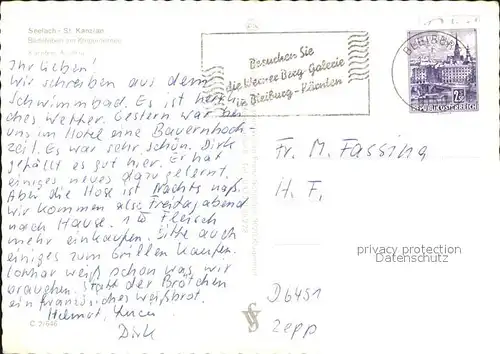 Seelach - St. Kanzian
Badeleben am Klopeinersee
Kärnten, Austria
Ihr Lieben!
Wir schreiben aus dem
Schwimmbad. Es ist herrli-
ches Wetter. Gestern war bei
uns im Hotel eine Bauernhoch-
zeit. Es war sehr schön. Dirk
gefällt es gut hier. Er hat
einiges neues dazu gelernt.
Aber die Hose ist Nachts naß.
Wir kommen also Freitagabend
nach Hause. 1 ℔ Fleisch
mehr einkaufen. Bitte auch
einiges zum Grillen kaufen.
Lothar weiß schon was wir
brauchen. Statt der Brötchen
ein französisches Weißbrot.
Helmut,
Dirk
C 2/646
Besuchen Sie
die Werner Berg-Galerie
in Bleiburg-Kärnten
BLEIBURG
2.20
REPUBLIK ÖSTERREICH
Fr. M. Fassing
H. F.
D6451
Zepp
privacy protection
Datenschutz